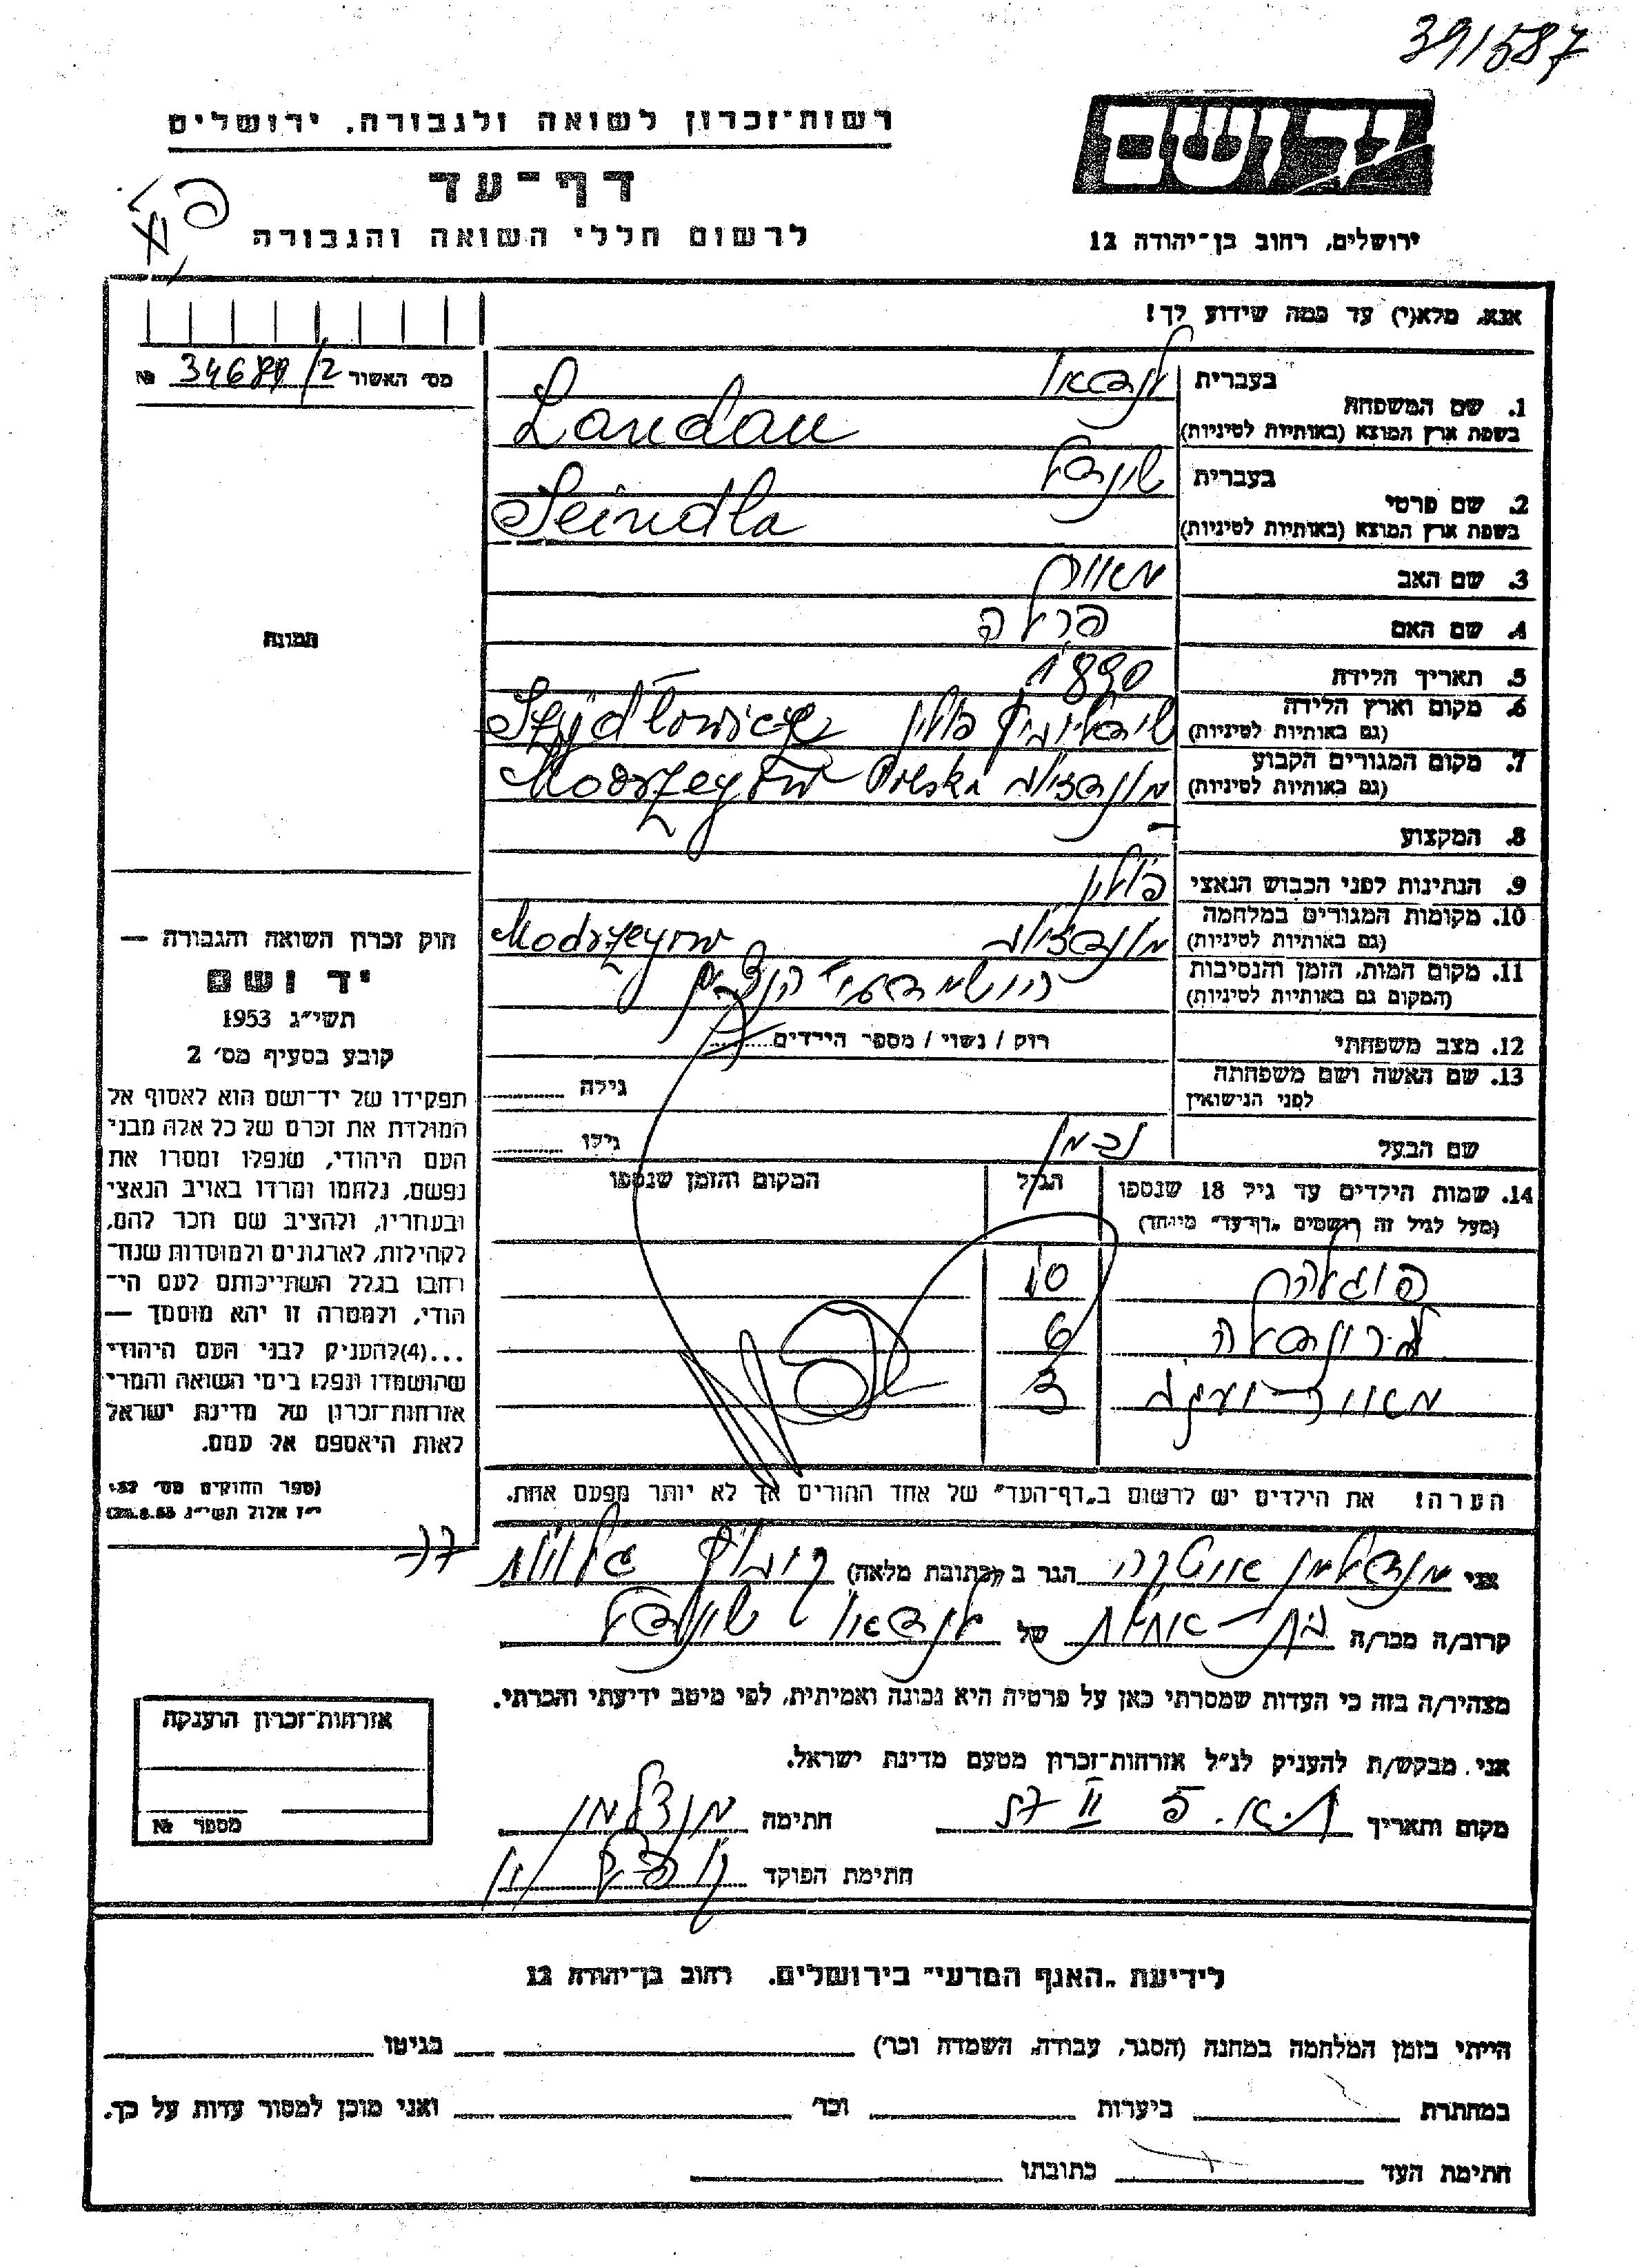 391587
יד ושם
רשות־זכרון לשואה ולגבורה, ירושלים
דף־עד
לרשום חללי השואה והגבורה
ירושלים, רחוב בן־יהודה 12
אנא, מלא(י) עד כמה שידוע לך!
מס׳ האשור № 34680/2
תמונה
1. שם המשפחה בעברית לנדאו
בשפת ארץ המוצא (באותיות לטיניות) Landau
2. שם פרטי בעברית שינדל
בשפת ארץ המוצא (באותיות לטיניות) Seindla
3. שם האב מאיר
4. שם האם פרלה
5. תאריך הלידה 1890
6. מקום וארץ הלידה (גם באותיות לטיניות) שידלוביץ פולין Szydłowiec
7. מקום המגורים הקבוע (גם באותיות לטיניות) Polska Modrzeyów
8. המקצוע —
9. הנתינות לפני הכבוש הנאצי פולין
10. מקומות המגורים במלחמה (גם באותיות לטיניות) Modrzeyów
11. מקום המות, הזמן והנסיבות (המקום גם באותיות לטיניות)
12. מצב משפחתי רווק / נשוי / מספר הילדים
13. שם האשה ושם משפחתה לפני הנישואין גילה
שם הבעל נחמן גילו
14. שמות הילדים עד גיל 18 שנספו הגיל המקום והזמן שנספו
(מעל לגיל זה רושמים „דף־עד” מיוחד)
10
6
3
הערה! את הילדים יש לרשום ב„דף־העד” של אחד ההורים אך לא יותר מפעם אחת.
חוק זכרון השואה והגבורה —
יד ושם
תשי״ג 1953
קובע בסעיף מס׳ 2
תפקידו של יד־ושם הוא לאסוף אל
המולדת את זכרם של כל אלה מבני
העם היהודי, שנפלו ומסרו את
נפשם, נלחמו ומרדו באויב הנאצי
ובעוזריו, ולהציב שם וזכר להם,
לקהילות, לארגונים ולמוסדות שנח־
רבו בגלל השתייכותם לעם הי־
הודי, ולמטרה זו יהא מוסמך —
...(4) להעניק לבני העם היהודי
שהושמדו ונפלו בימי השואה והמרי
אזרחות־זכרון של מדינת ישראל
לאות היאספם אל עמם.
(ספר החוקים מס׳ 132
י״ז אלול תשי״ג 28.8.53)
אני מנדלמן הגר ב (כתובת מלאה)
קרוב/ה מכר/ה בת־אחות של לנדאו שינדל
מצהיר/ה בזה כי העדות שמסרתי כאן על פרטיה היא נכונה ואמיתית, לפי מיטב ידיעתי והכרתי.
אני מבקש/ת להעניק לנ״ל אזרחות־זכרון מטעם מדינת ישראל.
מקום ותאריך ת.א. 5 II 57 חתימה מנדלמן
חתימת הפוקד
אזרחות־זכרון הוענקה
מספר №
לידיעת „האגף המדעי” בירושלים. רחוב בן־יהודה 12
הייתי בזמן המלחמה במחנה (הסגר, עבודה, השמדה וכו׳) בגיטו
במחתרת ביערות וכו׳ ואני מוכן למסור עדות על כך.
חתימת העד כתובתו